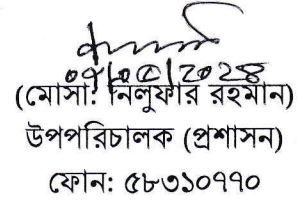 (মোসা: নিলুফার রহমান)
উপপরিচালক (প্রশাসন)
ফোন: ৫৮৩১০৭৭০